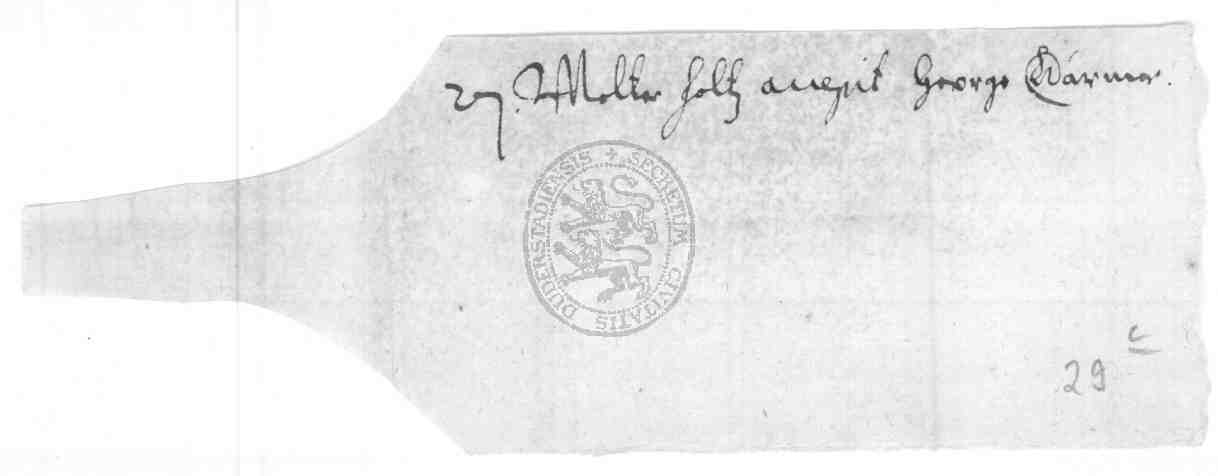 27. Malter holtz accepit George
✝ SECRETUM CIVITATIS DUDERSTADIENSIS
29 c